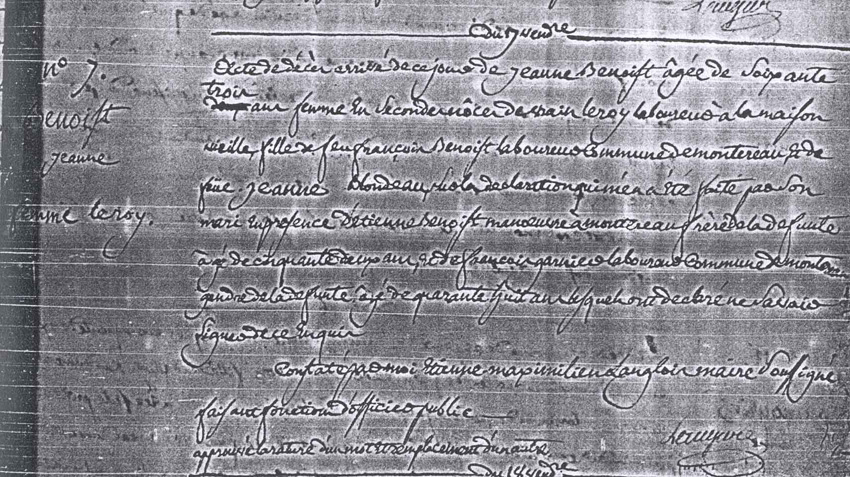 Du 17 vendre
n° 7.
Benoist
jeanne
femme leroy.
Acte de décès arrivé de ce jour de jeanne Benoist âgée de soixante
trois
ans femme en seconde nôce de leroy laboureur à la maison
vieille, fille de feu françois Benoist laboureur Commune de montereau, et de
feüe jeanne Blondeau, sur la déclaration qui m'en a été faite par son
mari En présence d'étienne Benoist manoeuvre à montereau frère de la défunte
âgé de cinquante deux ans, et de françois garnier laboureur Commune de montereau
gendre de la défunte, âgé de quarante huit ans lesquels ont déclaré ne savoir
signer de ce Enquis
Constaté par moi Etienne maximilien Langlois maire soussigné
faisant fonction d'officier public
approuvé la rature d'un mot et remplacement d'un autre.
du 18 vendre